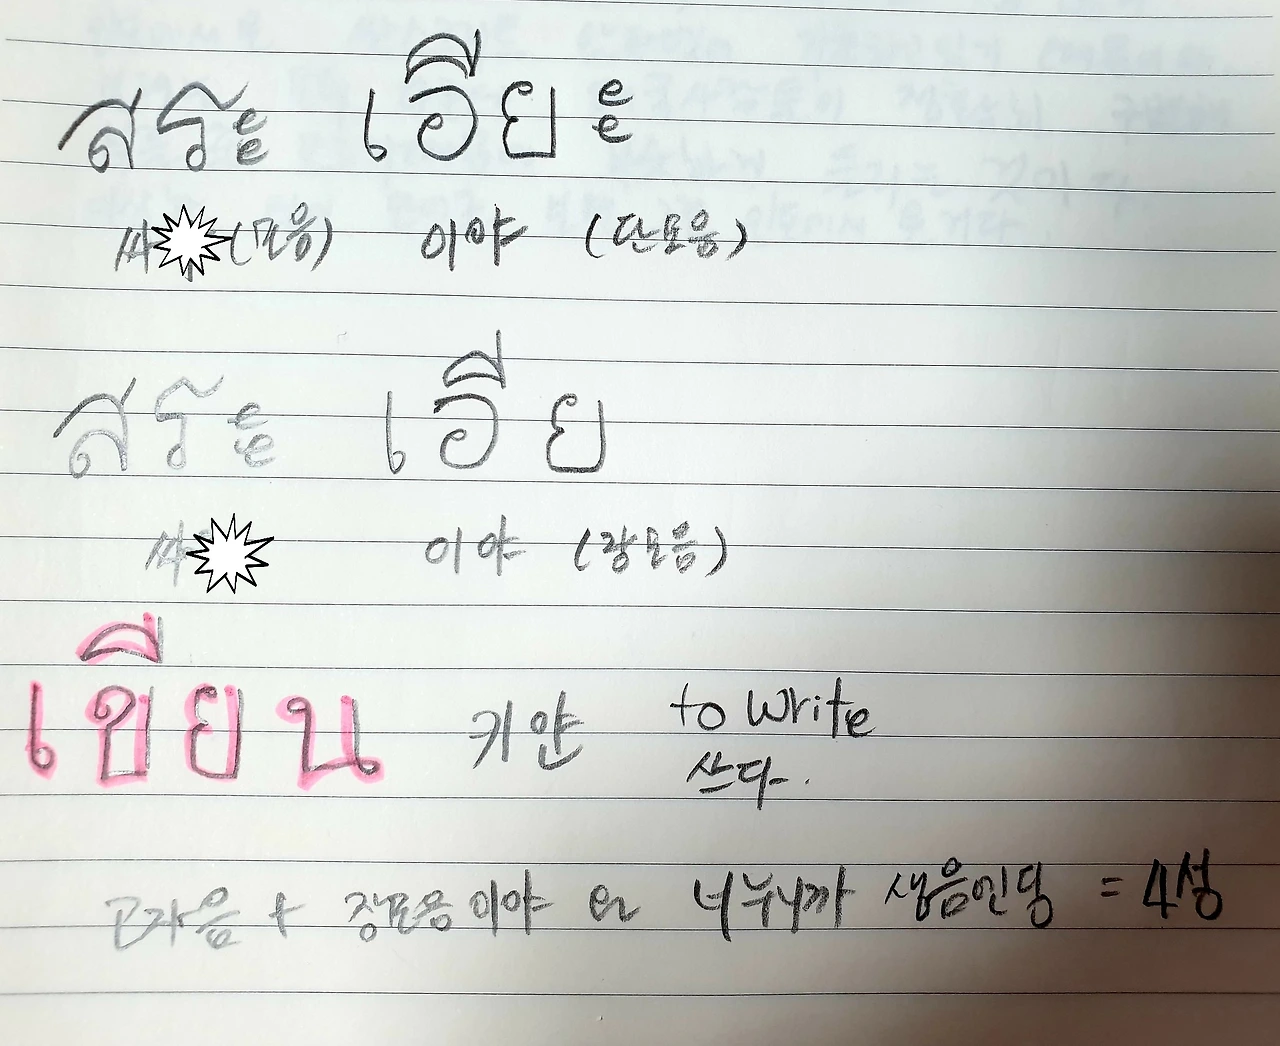 สระ เอียะ
싸 (모음) 이야 (단모음)
สระ เอีย
싸 이야 (장모음)
เขียน 키얀 to write
쓰다.
고자음 + 장모음 이야 en 너누니까 생음인덩 = 4성